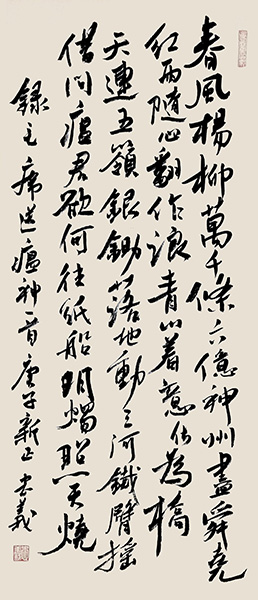 春風楊柳萬千條六億神州盡舜堯
紅雨隨心翻作浪青山着意化為橋
天連五嶺銀鋤落地動三河鐵臂搖
借問瘟君欲何往紙船明燭照天燒
錄主席送瘟神一首庚子新正書義